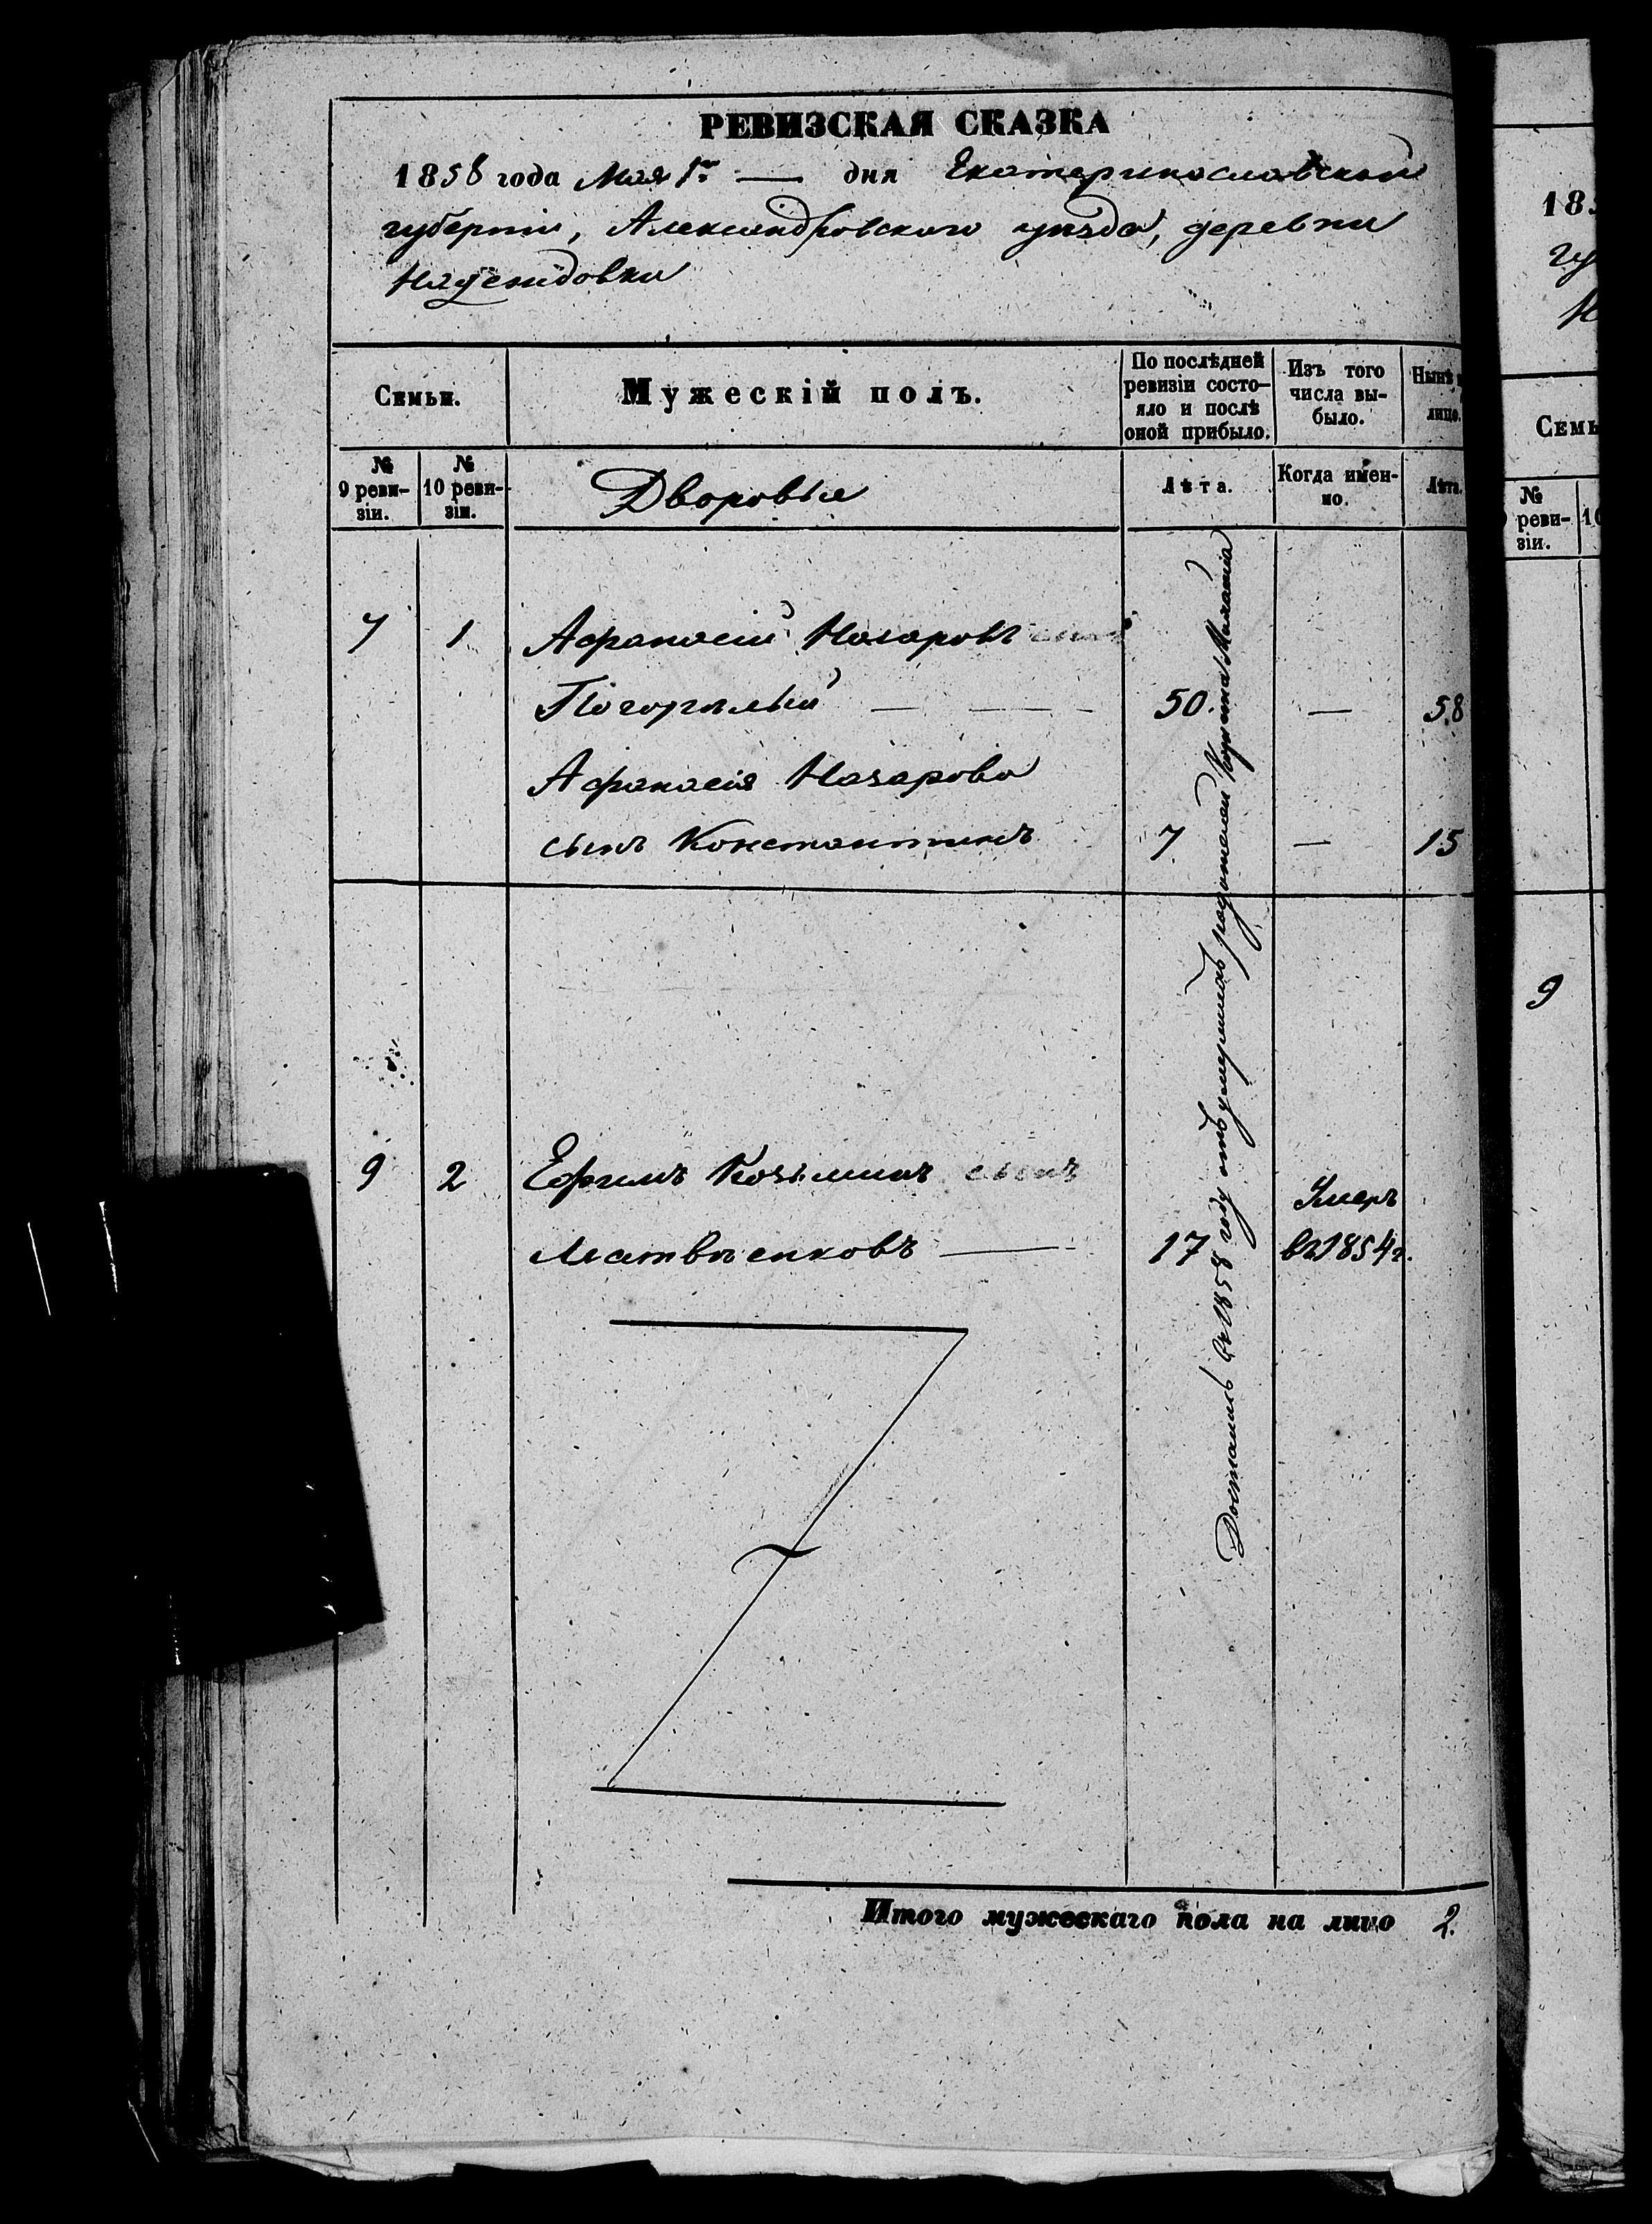 РЕВИЗСКАЯ СКАЗКА
1858 года Мая 1го — дня Екатеринославской
губерніи, Александровского уѣзда, деревни
Семьи.
Мужескій полъ.
По послѣдней ревизіи состо-
яло и послѣ
оной прибыло.
Изъ того
числа вы-
было.
Нынѣ
лицо.
№
9 реви-
зіи.
№
10 реви-
зіи.
Дворовые
Лѣта.
Когда имен-
но.
Лѣта.
7 1 Афанасій Назаровъ сынъ
Погорѣлый — — 50. — 58
Афанасія Назарова
сынъ Константинъ 7 — 15
9 2 Ефимъ Козьминъ сынъ Умеръ
Матвѣенковъ — 17 въ 1854 г.
Достались въ 1858 году отъ умершихъ родителей
Итого мужескаго пола на лицо 2.
185
гу
Семь
№
реви-
зіи.
10
9